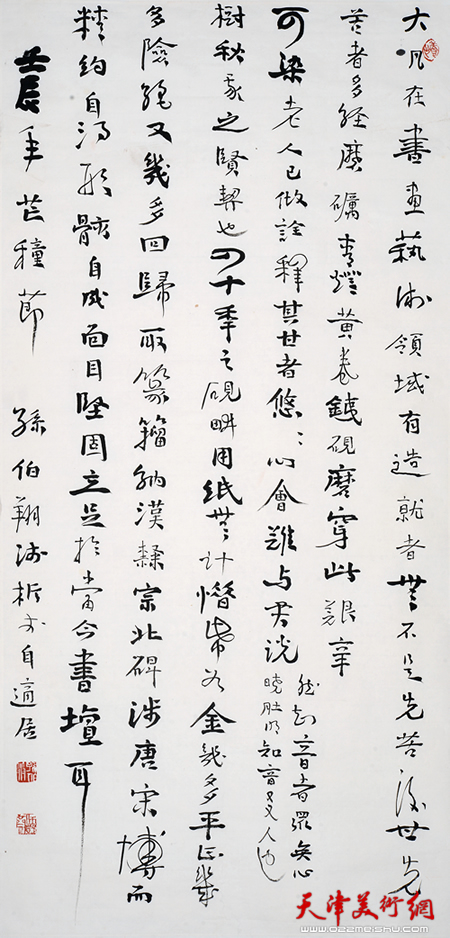 大凡在書画藝術領域有造就者無不是先苦後甘先
苦者多經磨礪青燈黃卷鐵硯磨穿此艱辛
可染老人已做詮釋其甘者悠悠心會難与君说
音者眾矣心
曉肚明知音
樹秋之賢契也四十年之硯畊用紙無計惜如金幾多平正幾
多險絕又幾多回歸取篆籀納漢隸宗北碑涉唐宋博而
精約自得形骸自成面目堅固立足於當今書壇耳
壬辰年芒種節 孫伯翔淺析於自適居
天津美術網
www.022meishu.com